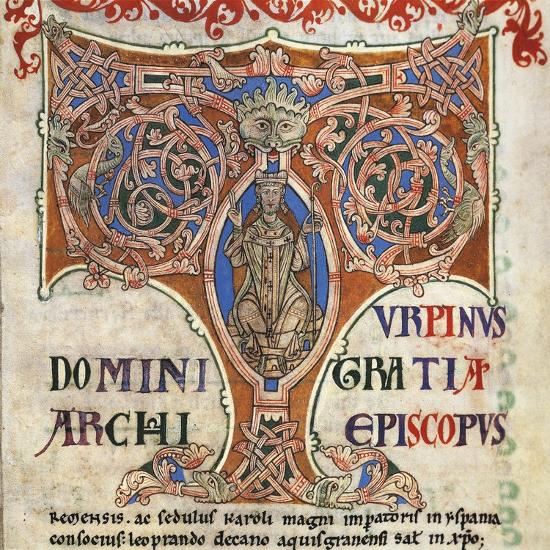 TVRPINVS
DOMINI GRATIA
ARCHI EPISCOPVS
REMENSIS. ac sedulus karoli magni imperatoris in yspania
consocius: leoprando decano aquisgranensi salt in xpo;